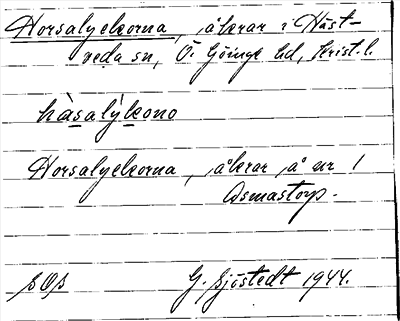 Horsalyckorna, åkrar i Häst-
veda sn, Ö. Göinge hd, Krist. l.
hàsalýkono
Horsalyckorna, åkrar å nr 1
Asmastorp.
SOS
G. Sjöstedt 1944.